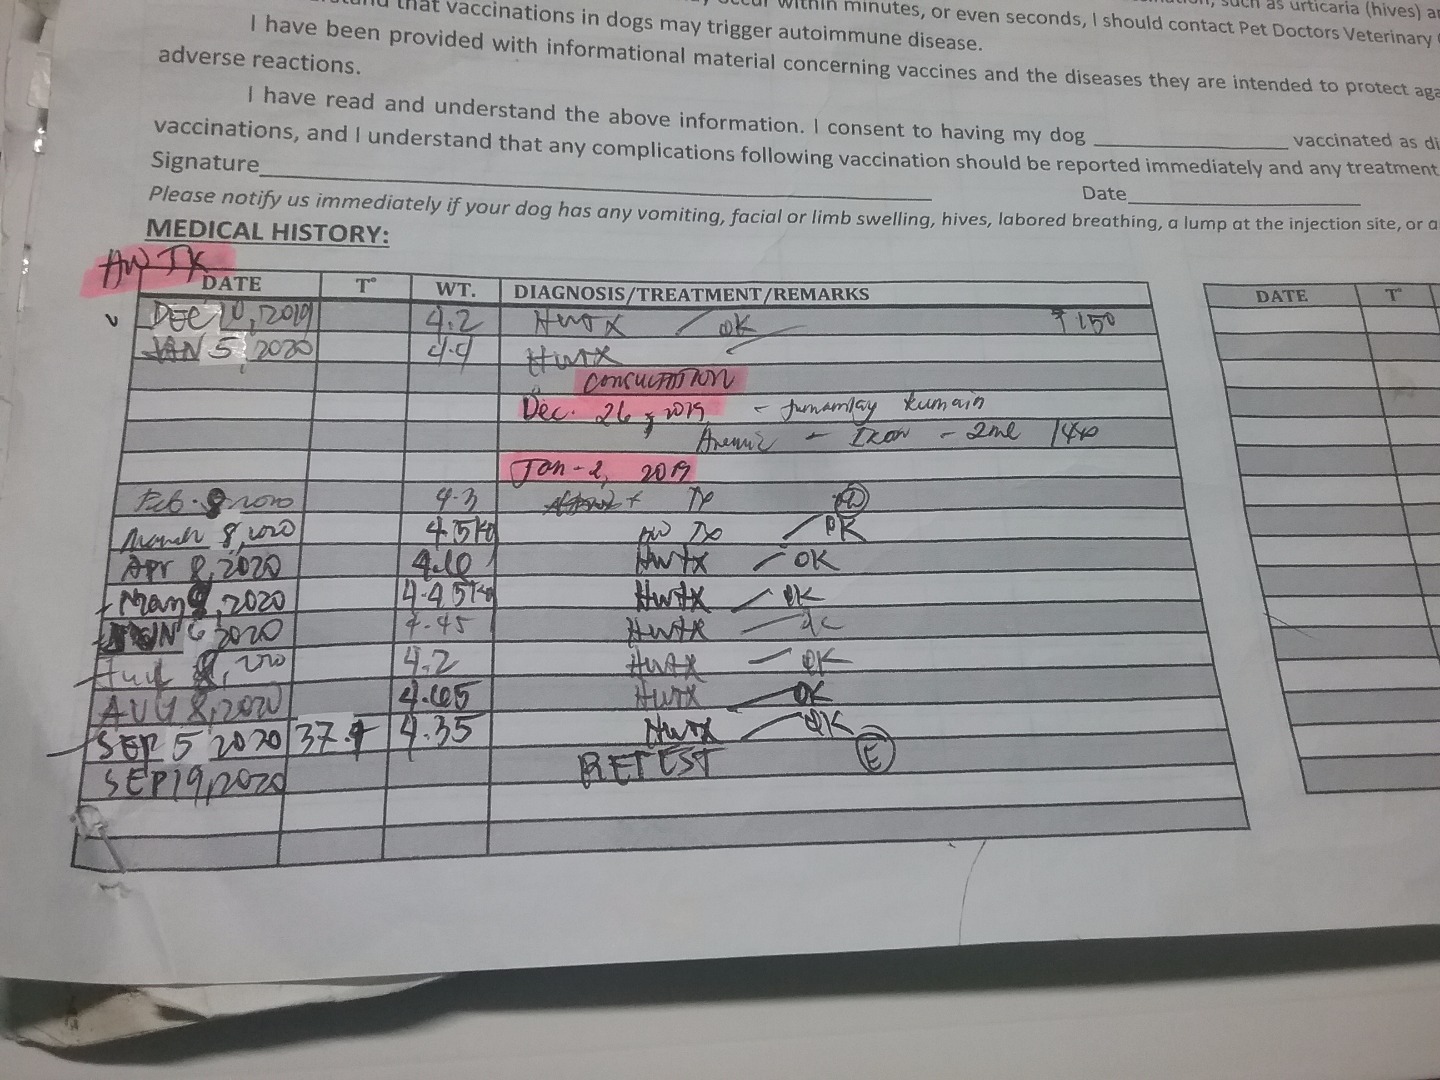 that vaccinations in dogs may trigger autoimmune disease.
within minutes, or even seconds, I should contact Pet Doctors Veterinary
such as urticaria (hives)
I have been provided with informational material concerning vaccines and the diseases they are intended to protect
adverse reactions.
I have read and understand the above information. I consent to having my dog ____________ vaccinated as
vaccinations, and I understand that any complications following vaccination should be reported immediately and any treatment
Signature____________ Date____________
Please notify us immediately if your dog has any vomiting, facial or limb swelling, hives, labored breathing, a lump at the injection site, or a
MEDICAL HISTORY:
HW TX
DATE T° WT. DIAGNOSIS/TREATMENT/REMARKS DATE T°
DEC 10, 2019 4.2 HWTX OK 150
JAN 5, 2020 4.4 HWTX
CONSULTATION
Dec. 26, 2019 - tumamlay kumain
Anemic - Iron - 2ml
Jan-2, 2019
Feb. 8 2020 4.3 TX
March 8, 2020 4.5kg HW TX OK
Apr 8, 2020 HWTX - OK
2020 4.45kg HWTX OK
JUN 6, 2020 HWTX
8, 2020 4.2 HWTX - OK
AUG 8, 2020 HWTX OK
SEP 5 2020 4.35 HWTX OK
SEP 19, 2020 RETEST E